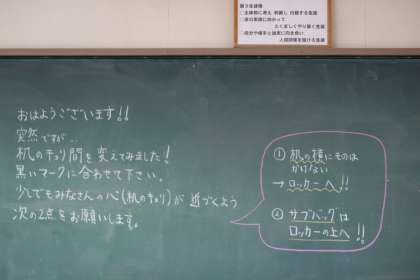 願う生徒像
○主体的に考え 判断し 行動する生徒
○夢の実現に向かって
たくましくやり抜く生徒
○自分や相手と誠実に向き合い
人間関係を築ける生徒
おはようございます!!
突然ですが..
机のキョリ間を変えてみました!
黒いマークに合わせて下さい。
少しでもみなさんの心(机のキョリ)が 近づくよう
次の2点をお願いします。
① 机の横にものは
かけない
→ ロッカーへ!!
② サブバッグは
ロッカーの上へ!!